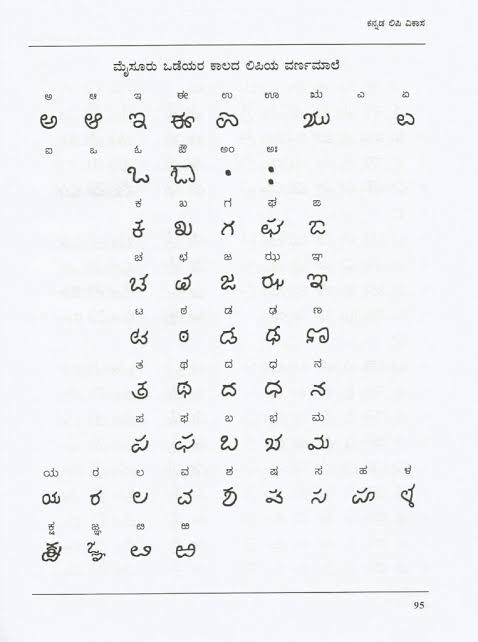 ಕನ್ನಡ ಲಿಪಿ ವಿಕಾಸ
ಮೈಸೂರು ಒಡೆಯರ ಕಾಲದ ಲಿಪಿಯ ವರ್ಣಮಾಲೆ
ಅ ಆ ಇ ಈ ಉ ಊ ಋ ಎ ಏ
ಅ ಆ ಇ ಈ ಉ ಋ ಎ
ಐ ಒ ಓ ಔ ಅಂ ಅಃ
ಒ ಔ
ಕ ಖ ಗ ಘ ಙ
ಕ ಖ ಗ ಘ ಙ
ಚ ಛ ಜ ಝ ಞ
ಚ ಛ ಜ ಝ ಞ
ಟ ಠ ಡ ಢ ಣ
ಟ ಠ ಡ ಢ ಣ
ತ ಥ ದ ಧ ನ
ತ ಥ ದ ಧ ನ
ಪ ಫ ಬ ಭ ಮ
ಪ ಫ ಬ ಭ ಮ
ಯ ರ ಲ ವ ಶ ಷ ಸ ಹ ಳ
ಯ ರ ಲ ವ ಶ ಷ ಸ ಹ ಳ
ಕ್ಷ ಜ್ಞ ೞ ಱ
ಕ್ಷ ಜ್ಞ ೞ ಱ
95